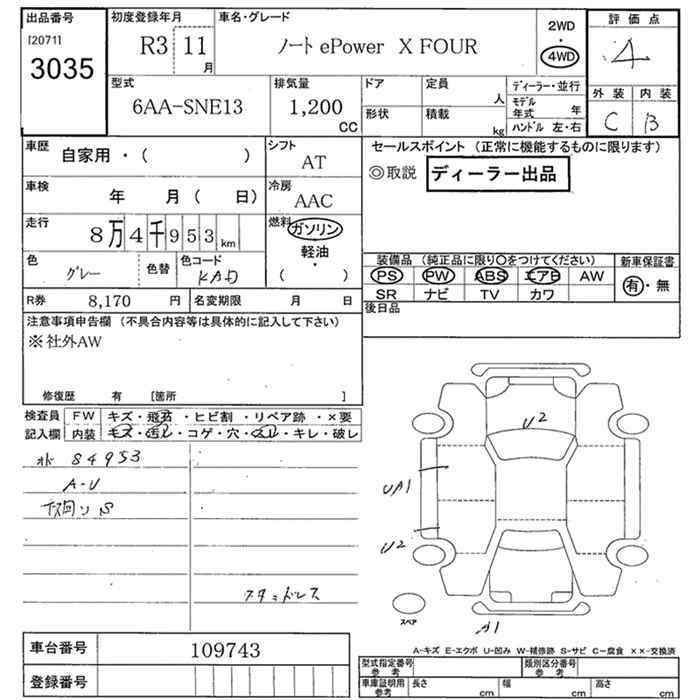 出品番号 初度登録年月 車名・グレード 2WD 評価点
[2071]
3035 R3 11月 ノート ePower X FOUR ・ 4WD 4
型式 排気量 ドア 定員 人 ディーラー・並行 外装 内装
6AA-SNE13 1,200 CC 形状 積載 kg モデル年式 年 C B
ハンドル 左・右
車歴 自家用・( ) シフト AT セールスポイント (正常に機能するものに限ります)
◎取説 ディーラー出品
車検 年 月( 日) 冷房 AAC
走行 8万4千953km 燃料 ガソリン
軽油
・
( )
色 グレー 色替 色コード KAD 装備品 (純正品に限り○をつけてください) 新車保証書
PS PW ABS エアB AW 有・無
R券 8,170 円 名変期限 月 日 SR ナビ TV カワ
注意事項申告欄 (不具合内容等は具体的に記入して下さい) 後日品
※社外AW
修復歴 有 [箇所 ]
検査員 FW キズ・飛石・ヒビ割・リペア跡・×要
記入欄 内装 キズ・汚レ・コゲ・穴・スレ・キレ・破レ
U2
オド 84953
A-U UA1
下回り S U2
スタッドレス スペア
A1
A-キズ E-エクボ U-凹み W-補修跡 S-サビ C-腐食 ××-交換済
車台番号 109743 型式指定番号 参考 類別区分番号 参考
登録番号 車庫証明用 参考 長さ cm 幅 cm 高さ cm